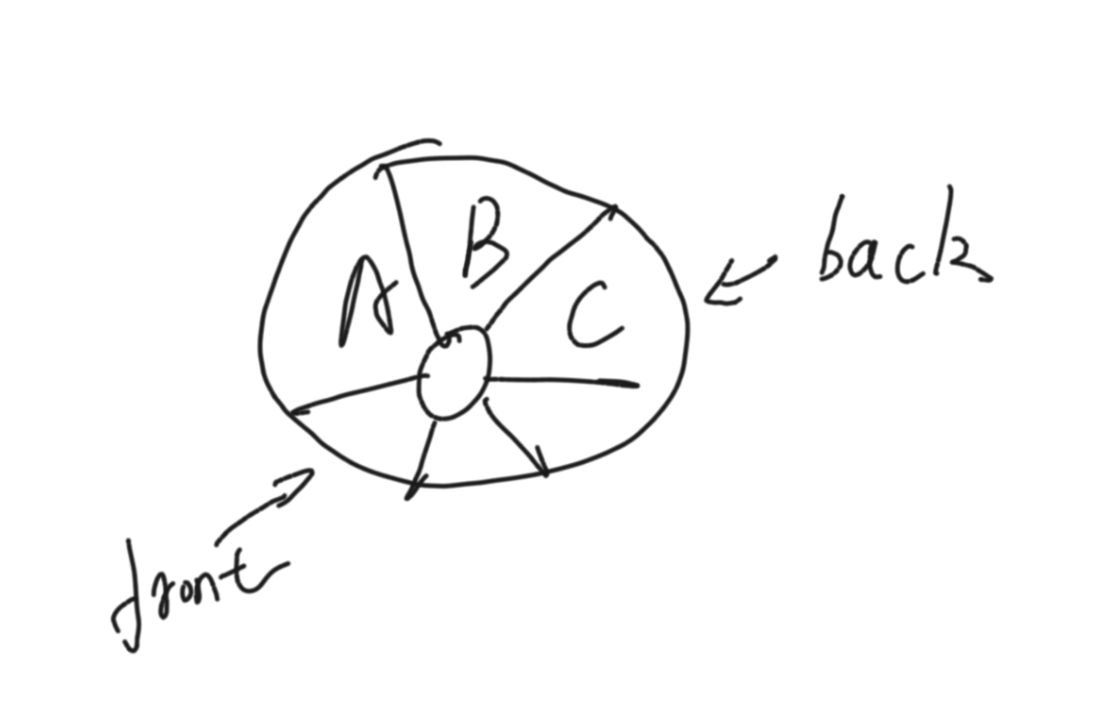 B
A
C
back
front